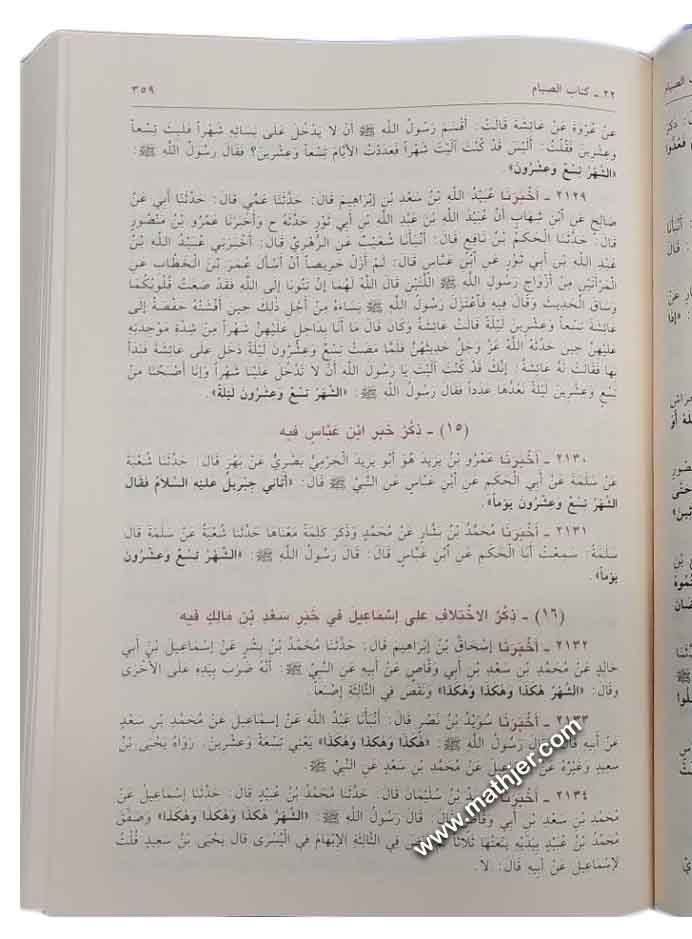 ٢٢ ـ كتاب الصيام ٣٥٩
عَنْ عُرْوَةَ عَنْ عَائِشَةَ قَالَتْ: أَقْسَمَ رَسُولُ اللَّهِ ﷺ أَنْ لَا يَدْخُلَ عَلَى نِسَائِهِ شَهْراً فَلَبِثَ تِسْعاً
وَعِشْرِينَ فَقُلْتُ: أَلَيْسَ قَدْ كُنْتَ آلَيْتَ شَهْراً فَعَدَدْتُ الأَيَّامَ تِسْعاً وَعِشْرِينَ؟ فَقَالَ رَسُولُ اللَّهِ ﷺ:
«الشَّهْرُ تِسْعٌ وَعِشْرُونَ».
٢١٢٩ ـ أَخْبَرَنَا عُبَيْدُ اللَّهِ بْنُ سَعْدِ بْنِ إِبْرَاهِيمَ قَالَ: حَدَّثَنَا عَمِّي قَالَ: حَدَّثَنَا أَبِي عَنْ
صَالِحٍ عَنِ ابْنِ شِهَابٍ أَنَّ عُبَيْدَ اللَّهِ بْنَ عَبْدِ اللَّهِ بْنِ أَبِي ثَوْرٍ حَدَّثَهُ ح وَأَخْبَرَنَا عَمْرُو بْنُ مَنْصُورٍ
قَالَ: حَدَّثَنَا الْحَكَمُ بْنُ نَافِعٍ قَالَ: أَنْبَأَنَا شُعَيْبٌ عَنِ الزُّهْرِيِّ قَالَ: أَخْبَرَنِي عُبَيْدُ اللَّهِ بْنُ
عَبْدِ اللَّهِ بْنِ أَبِي ثَوْرٍ عَنِ ابْنِ عَبَّاسٍ قَالَ: لَمْ أَزَلْ حَرِيصاً أَنْ أَسْأَلَ عُمَرَ بْنَ الْخَطَّابِ عَنِ
الْمَرْأَتَيْنِ مِنْ أَزْوَاجِ رَسُولِ اللَّهِ ﷺ اللَّتَيْنِ قَالَ اللَّهُ لَهُمَا إِنْ تَتُوبَا إِلَى اللَّهِ فَقَدْ صَغَتْ قُلُوبُكُمَا
وَسَاقَ الْحَدِيثَ وَقَالَ فِيهِ فَاعْتَزَلَ رَسُولُ اللَّهِ ﷺ نِسَاءَهُ مِنْ أَجْلِ ذَلِكَ حِينَ أَفْشَتْهُ حَفْصَةُ إِلَى
عَائِشَةَ تِسْعاً وَعِشْرِينَ لَيْلَةً قَالَتْ عَائِشَةُ وَكَانَ قَالَ مَا أَنَا بِدَاخِلٍ عَلَيْهِنَّ شَهْراً مِنْ شِدَّةِ مَوْجِدَتِهِ
عَلَيْهِنَّ حِينَ حَدَّثَهُ اللَّهُ عَزَّ وَجَلَّ حَدِيثَهُنَّ فَلَمَّا مَضَتْ تِسْعٌ وَعِشْرُونَ لَيْلَةً دَخَلَ عَلَى عَائِشَةَ فَبَدَأَ
بِهَا فَقَالَتْ لَهُ عَائِشَةُ: إِنَّكَ قَدْ كُنْتَ آلَيْتَ يَا رَسُولَ اللَّهِ أَنْ لَا تَدْخُلَ عَلَيْنَا شَهْراً وَإِنَّا أَصْبَحْنَا مِنْ
تِسْعٍ وَعِشْرِينَ لَيْلَةً نَعُدُّهَا عَدَداً فَقَالَ رَسُولُ اللَّهِ ﷺ: «الشَّهْرُ تِسْعٌ وَعِشْرُونَ لَيْلَةً».
(١٥) ـ ذِكْرُ خَبَرِ ابْنِ عَبَّاسٍ فِيهِ
٢١٣٠ ـ أَخْبَرَنَا عَمْرُو بْنُ يَزِيدَ هُوَ أَبُو يَزِيدَ الْجَرْمِيُّ بَصْرِيٌّ عَنْ بَهْزٍ قَالَ: حَدَّثَنَا شُعْبَةُ
عَنْ سَلَمَةَ عَنْ أَبِي الْحَكَمِ عَنِ ابْنِ عَبَّاسٍ عَنِ النَّبِيِّ ﷺ قَالَ: «أَتَانِي جِبْرِيلُ عَلَيْهِ السَّلَامُ فَقَالَ
الشَّهْرُ تِسْعٌ وَعِشْرُونَ يَوْماً».
٢١٣١ ـ أَخْبَرَنَا مُحَمَّدُ بْنُ بَشَّارٍ عَنْ مُحَمَّدٍ وَذَكَرَ كَلِمَةً مَعْنَاهَا حَدَّثَنَا شُعْبَةُ عَنْ سَلَمَةَ قَالَ
سَلَمَةُ: سَمِعْتُ أَبَا الْحَكَمِ عَنِ ابْنِ عَبَّاسٍ قَالَ: قَالَ رَسُولُ اللَّهِ ﷺ: «الشَّهْرُ تِسْعٌ وَعِشْرُونَ
يَوْماً».
(١٦) ـ ذِكْرُ الاخْتِلَافِ عَلَى إِسْمَاعِيلَ فِي خَبَرِ سَعْدِ بْنِ مَالِكٍ فِيهِ
٢١٣٢ ـ أَخْبَرَنَا إِسْحَاقُ بْنُ إِبْرَاهِيمَ قَالَ: حَدَّثَنَا مُحَمَّدُ بْنُ بِشْرٍ عَنْ إِسْمَاعِيلَ بْنِ أَبِي
خَالِدٍ عَنْ مُحَمَّدِ بْنِ سَعْدِ بْنِ أَبِي وَقَّاصٍ عَنْ أَبِيهِ عَنِ النَّبِيِّ ﷺ: أَنَّهُ ضَرَبَ بِيَدِهِ عَلَى الأُخْرَى
وَقَالَ: «الشَّهْرُ هَكَذَا وَهَكَذَا وَهَكَذَا» وَنَقَصَ فِي الثَّالِثَةِ إِصْبَعاً.
٢١٣٣ ـ أَخْبَرَنَا سُوَيْدُ بْنُ نَصْرٍ قَالَ: أَنْبَأَنَا عَبْدُ اللَّهِ عَنْ إِسْمَاعِيلَ عَنْ مُحَمَّدِ بْنِ سَعْدٍ
عَنْ أَبِيهِ قَالَ: قَالَ رَسُولُ اللَّهِ ﷺ: «الشَّهْرُ هَكَذَا وَهَكَذَا وَهَكَذَا» يَعْنِي تِسْعَةً وَعِشْرِينَ. رَوَاهُ يَحْيَى بْنُ
سَعِيدٍ وَغَيْرُهُ عَنْ إِسْمَاعِيلَ عَنْ مُحَمَّدِ بْنِ سَعْدٍ عَنِ النَّبِيِّ ﷺ.
٢١٣٤ ـ أَخْبَرَنَا بْنُ سُلَيْمَانَ قَالَ: حَدَّثَنَا مُحَمَّدُ بْنُ عُبَيْدٍ قَالَ: حَدَّثَنَا إِسْمَاعِيلُ عَنْ
مُحَمَّدِ بْنِ سَعْدِ بْنِ أَبِي وَقَّاصٍ قَالَ: قَالَ رَسُولُ اللَّهِ ﷺ: «الشَّهْرُ هَكَذَا وَهَكَذَا وَهَكَذَا» وَصَفَّقَ
مُحَمَّدُ بْنُ عُبَيْدٍ بِيَدَيْهِ يَنْعَتُهَا ثَلَاثاً فِي الثَّالِثَةِ الإِبْهَامَ فِي الْيُسْرَى قَالَ يَحْيَى بْنُ سَعِيدٍ قُلْتُ
لِإِسْمَاعِيلَ عَنْ أَبِيهِ قَالَ: لَا.
www.mathjer.com